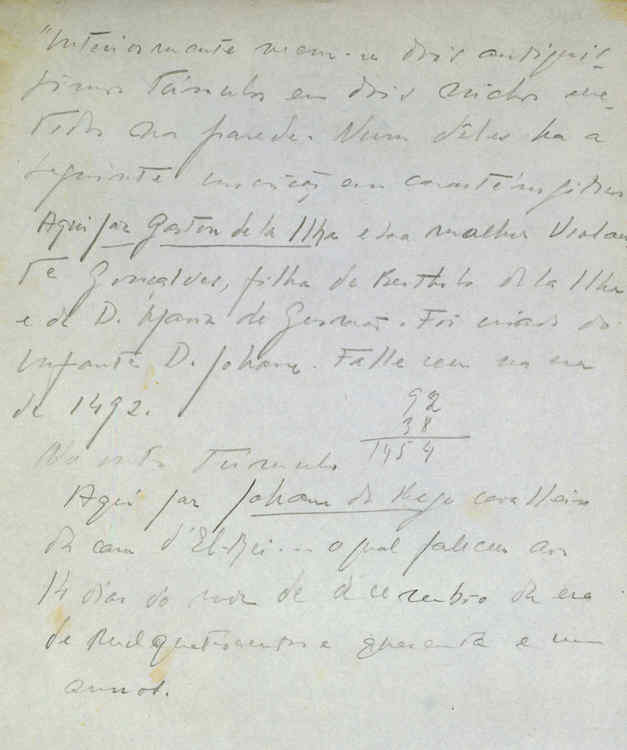 "Interiormente veem-se dois antiquis-
simos tumulos em dois nichos me-
tidos na parede. Num deles ha a
seguinte inscrição em caracteres goticos
Aqui jaz Gaston de la Ilha e sua molher Violan
te Gonçalves, filha de Bertholo de la Ilha
e de D. Maria de . Foi criado do
Infante D. Johane. Falleceu na era
de 1492.
92
38
1454
No outro Tumulo
Aqui jaz Johane do Rego cavalleiro
da casa d'El-Rei ... o qual faleceu aos
14 dias do mez de decembro da era
de mil quatrocentos e quarenta e um
annos.